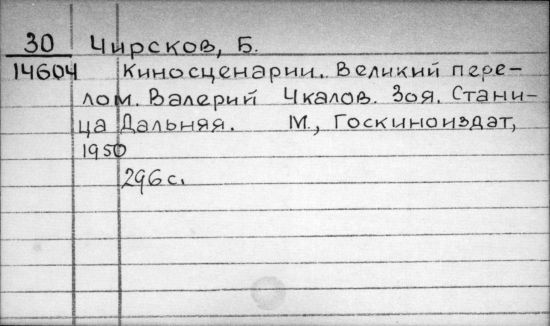 30 Чирсков, Б.
14604 Киносценарии. Великий пере-
лом. Валерий Чкалов. Зоя. Стани-
ца Дальняя. М., Госкиноиздат,
1950
296 с.